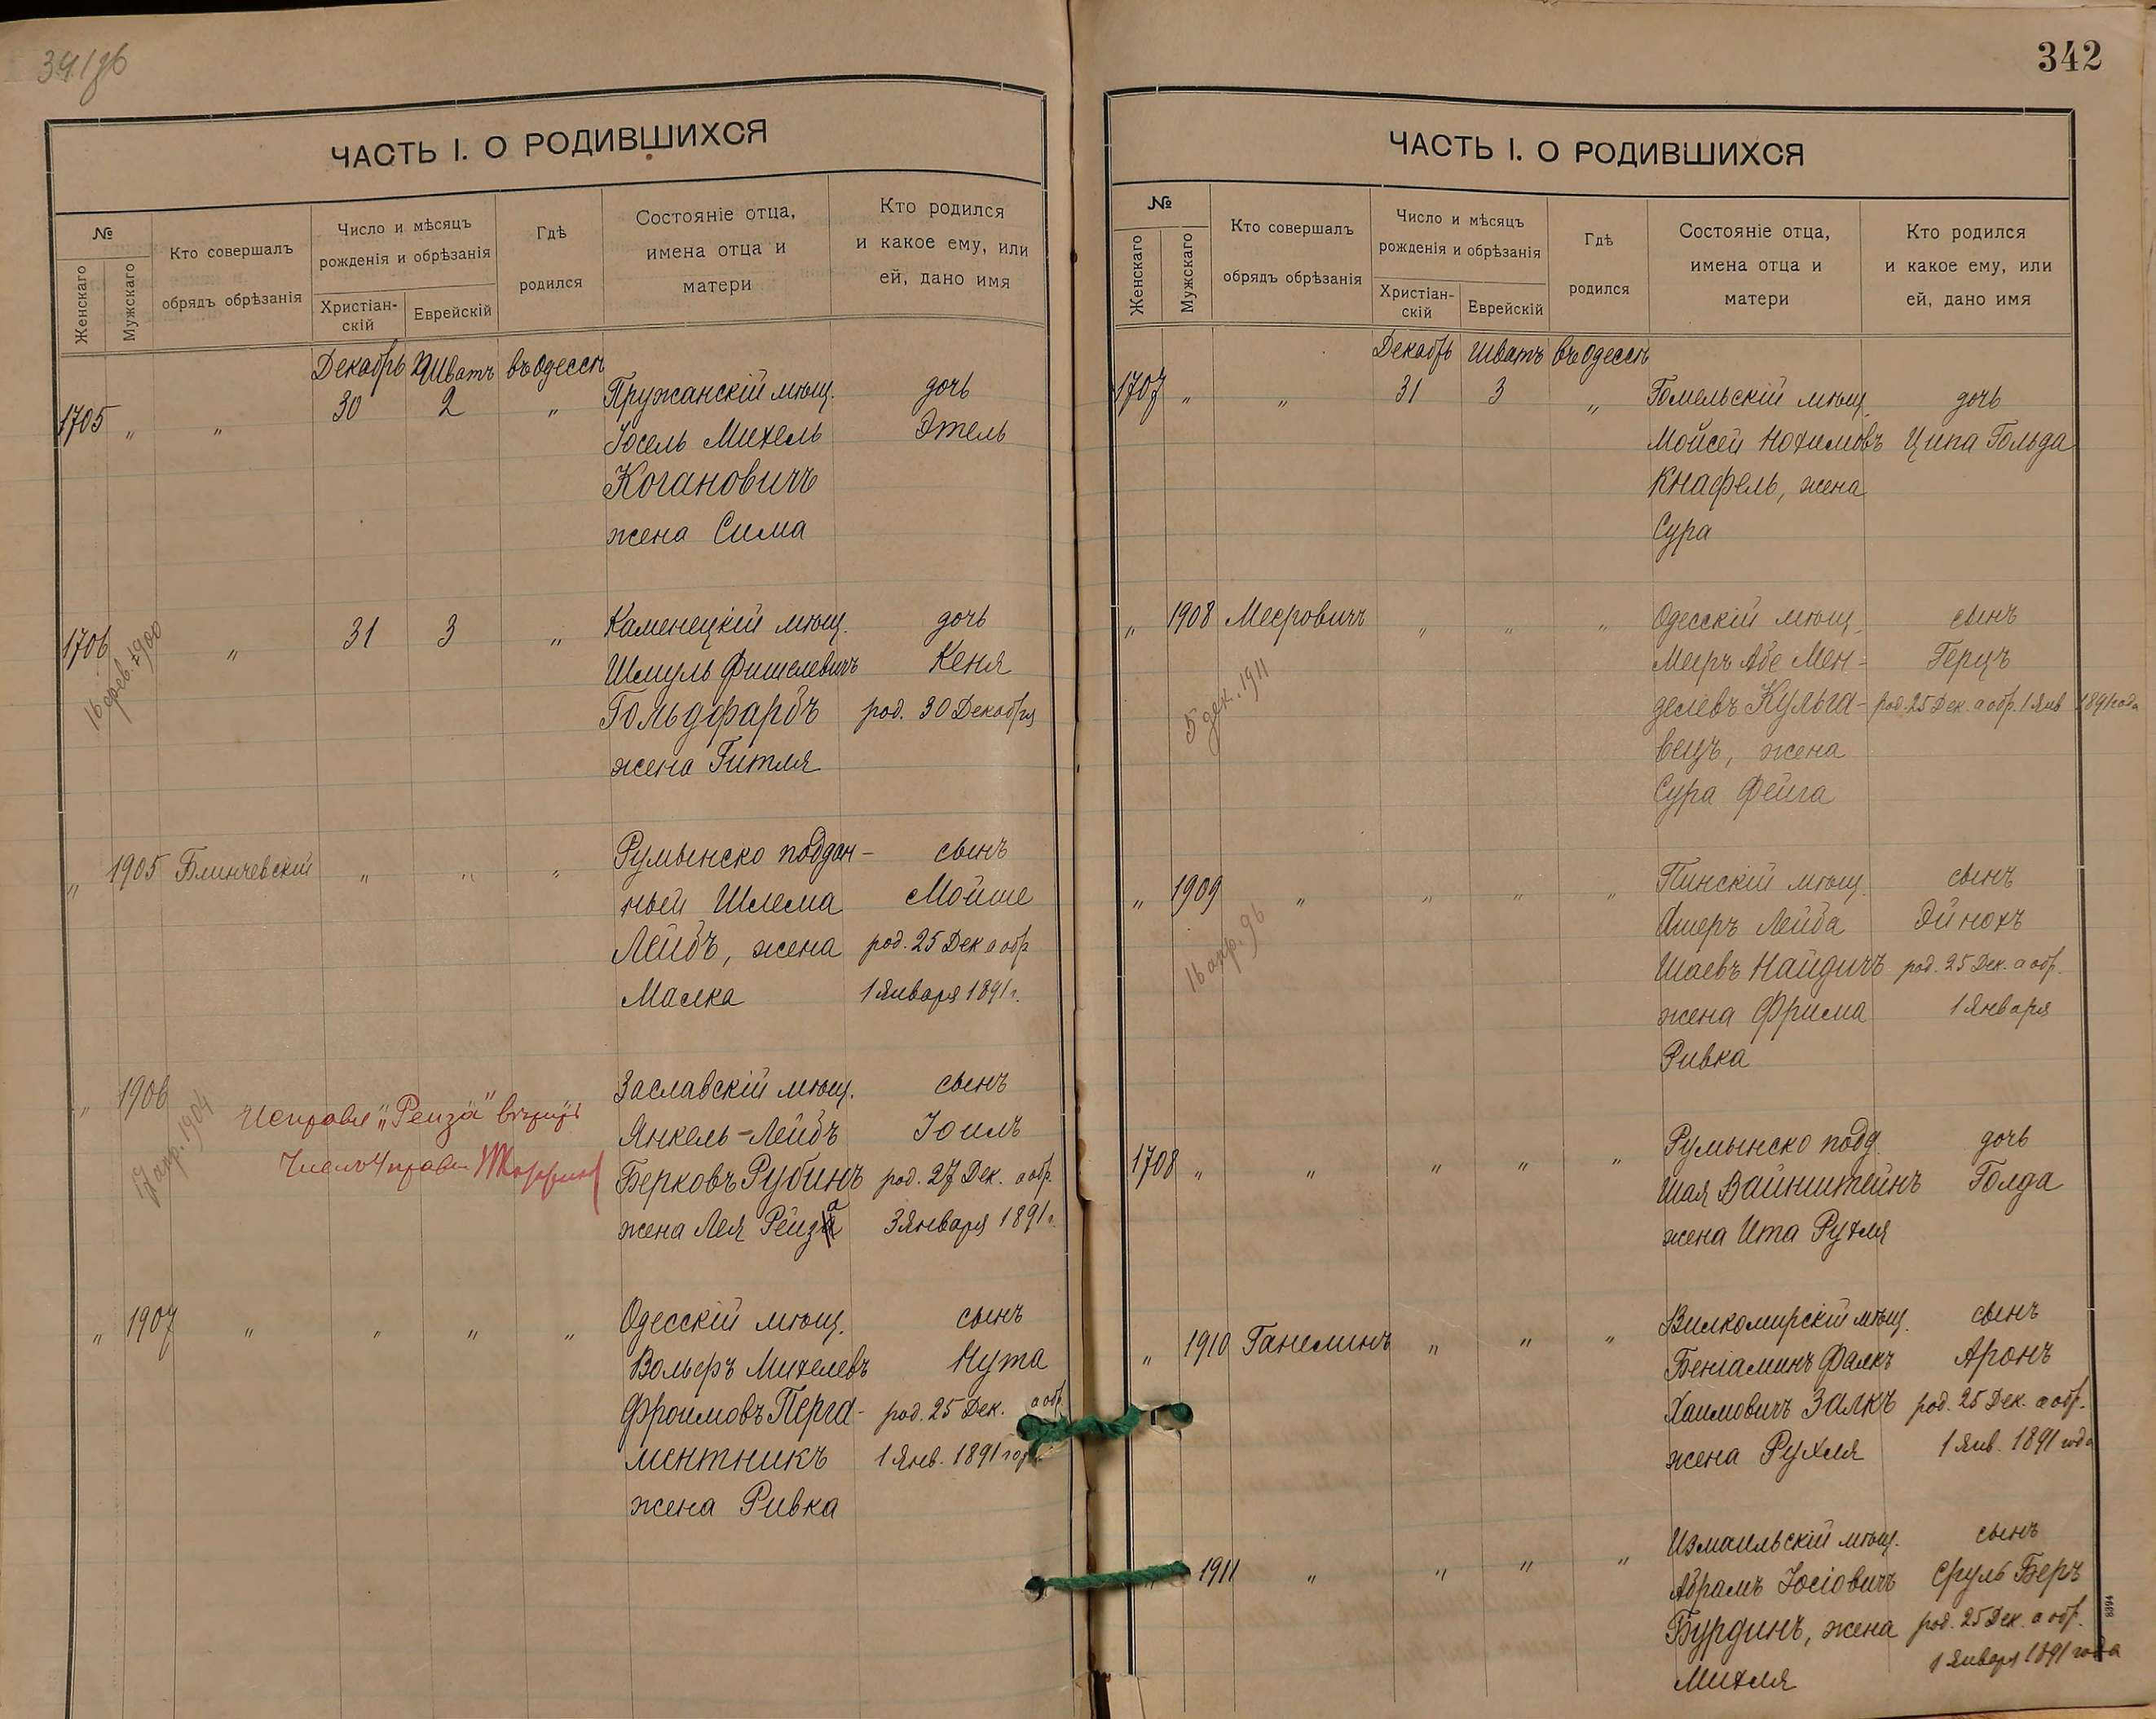 ЧАСТЬ I. О РОДИВШИХСЯ
№
Женскаго
Мужскаго
Кто совершалъ
обрядъ обрѣзанія
Число и мѣсяцъ
рожденія и обрѣзанія
Христіан-
скій
Еврейскій
Гдѣ
родился
Состояніе отца,
имена отца и
матери
Кто родился
и какое ему, или
ей, дано имя
Декабрь Шватъ въ Одессѣ
1705 " " 30 2 "
Пружанскій мѣщ.
Іосель Михель
Когановичъ
жена Сима
дочь
Этель
1706 " 31 3 "
16 фев. 1900
Каменецкій мѣщ.
Шмуль Фишелевичъ
Гольдфарбъ
жена Гитля
дочь
Кеня
род. 30 Декабря
" 1905 Блинчевскій " " "
Румынско поддан-
ный Шлема
Лейбъ, жена
Малка
сынъ
Мойше
род. 25 Дек а обр
1 Января 1891 г.
" 1906
17 апр. 1904
Исправл "Рейза" вѣрить
Заславскій мѣщ.
Янкель-Лейбъ
Берковъ Рубинъ
жена Лея Рейза
сынъ
Іоилъ
род. 27 Дек. а обр.
3 Января 1891 г.
" 1907 " " " "
Одесскій мѣщ.
Вольфъ Михелевъ
Фроимовъ Перга-
ментникъ
жена Ривка
сынъ
Нута
род. 25 Дек. а обр
1 Янв. 1891 года
342
ЧАСТЬ I. О РОДИВШИХСЯ
№
Женскаго
Мужскаго
Кто совершалъ
обрядъ обрѣзанія
Число и мѣсяцъ
рожденія и обрѣзанія
Христіан-
скій
Еврейскій
Гдѣ
родился
Состояніе отца,
имена отца и
матери
Кто родился
и какое ему, или
ей, дано имя
Декабрь Шватъ въ Одессѣ
1707 " " 31 3 "
Гомельскій мѣщ.
Мойсей Нохимовъ
Кнафель, жена
Сура
дочь
Ципа Гольда
" 1908 Мееровичъ " " "
5 дек. 1911
Одесскій мѣщ.
Меиръ Абе Мен-
делевъ Кульга-
вецъ, жена
Сура Фейга
сынъ
Герцъ
род. 25 Дек. а обр. 1 Янв 1891 года
" 1909 " " " "
16 апр. 96
Пинскій мѣщ.
Ошеръ Лейба
Шаевъ Найдичъ
жена Фрима
Ривка
сынъ
Эйнохъ
род. 25 Дек. а обр.
1 Января
1708 " " " " "
Румынско подд.
Шая Вайнштейнъ
жена Ита Рухля
дочь
Голда
" 1910 Ганелинъ " " "
Вилкомирскій мѣщ.
Беніаминъ Фалкъ
Хаимовичъ Залкъ
жена Рухля
сынъ
Аронъ
род. 25 Дек. а обр.
1 Янв. 1891 года
1911 " " " "
Измаильскій мѣщ.
Абрамъ Іосіовичъ
Бурдинъ, жена
Михля
сынъ
Сруль Беръ
род. 25 Дек. а обр.
1 Января 1891 года
8394